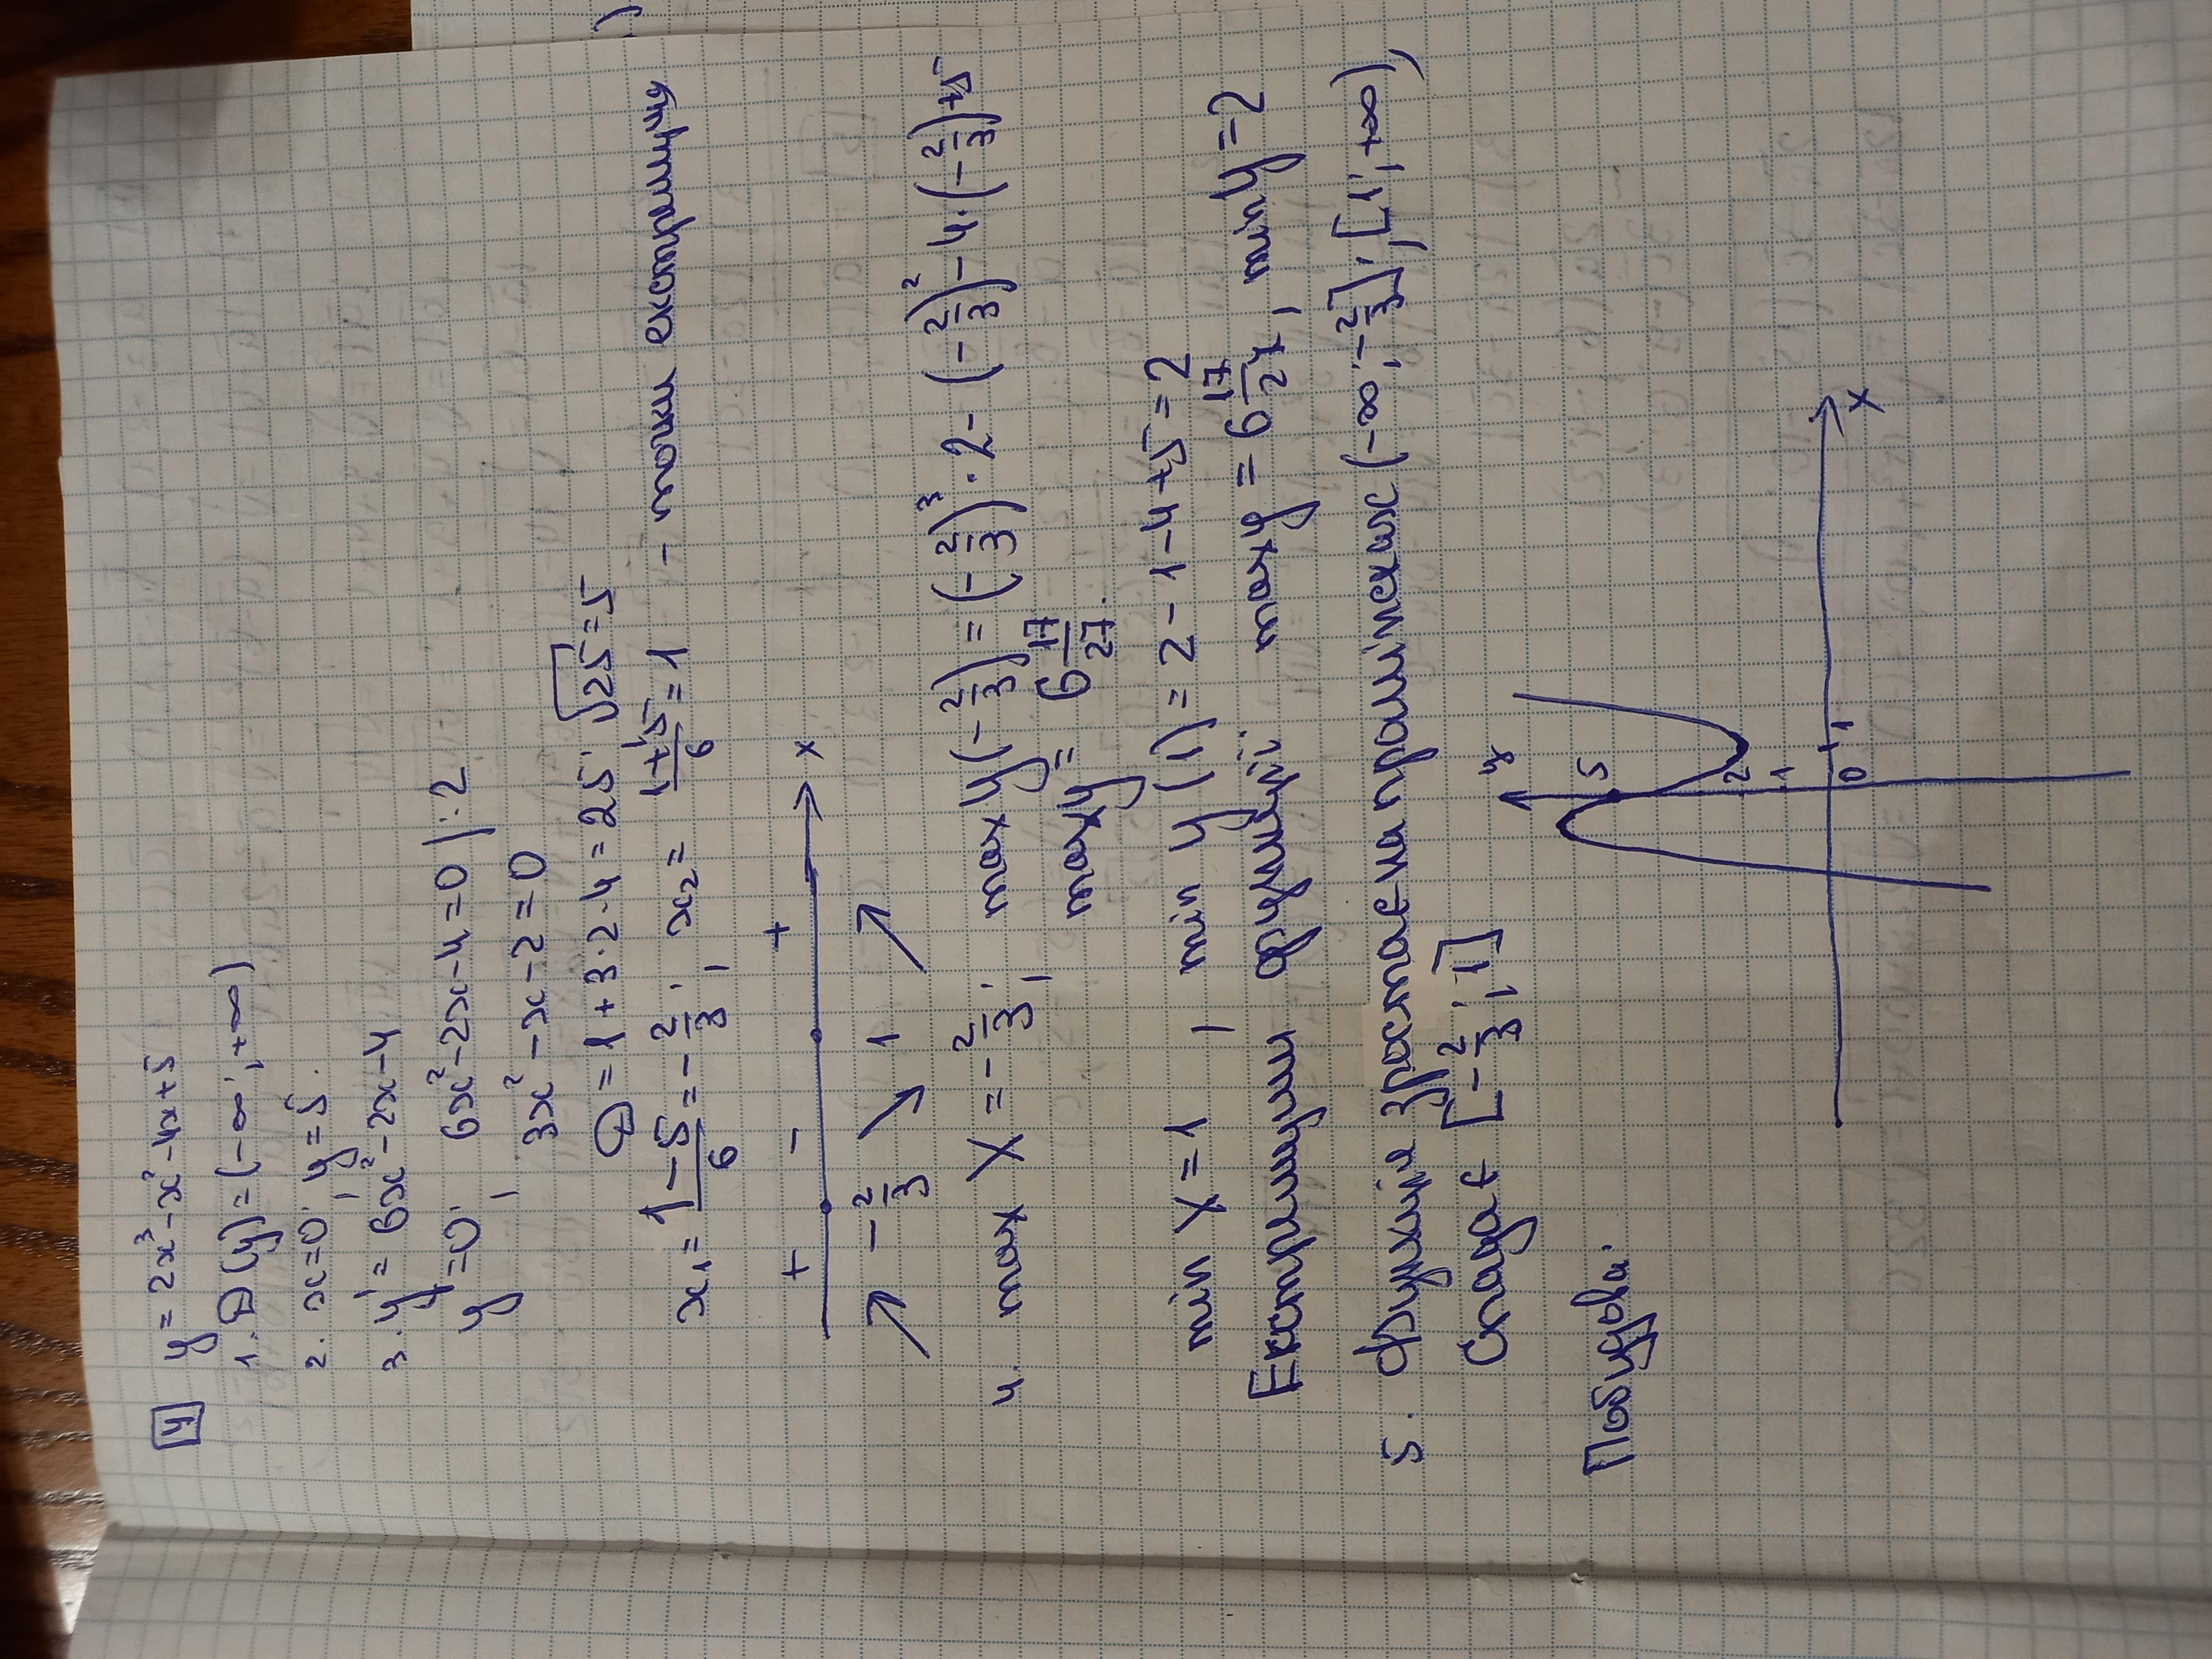 4 y = 2x³ - x² - 4x + 5
1. D(y) = (-∞; +∞)
2. x=0; y=5.
3. y' = 6x² - 2x - 4
y' = 0; 6x² - 2x - 4 = 0 | : 2
3x² - x - 2 = 0
D = 1 + 3·2·4 = 25; √25 = 5
x₁ = (1-5)/6 = -2/3; x₂ = (1+5)/6 = 1 - точки екстремуму
+ - + x
-2/3 1
4. max x = -2/3; max y(-2/3) = (-2/3)³ · 2 - (-2/3)² - 4·(-2/3) + 5
max y = 6 17/27.
min x = 1 ; min y (1) = 2 - 1 - 4 + 5 = 2
Екстремуми функції: max y = 6 17/27; min y = 2
5. Функція зростає на проміжках (-∞; -2/3]; [1; +∞)
Спадає [-2/3; 1]
Побудова:
y
5
2
1
0 1 x